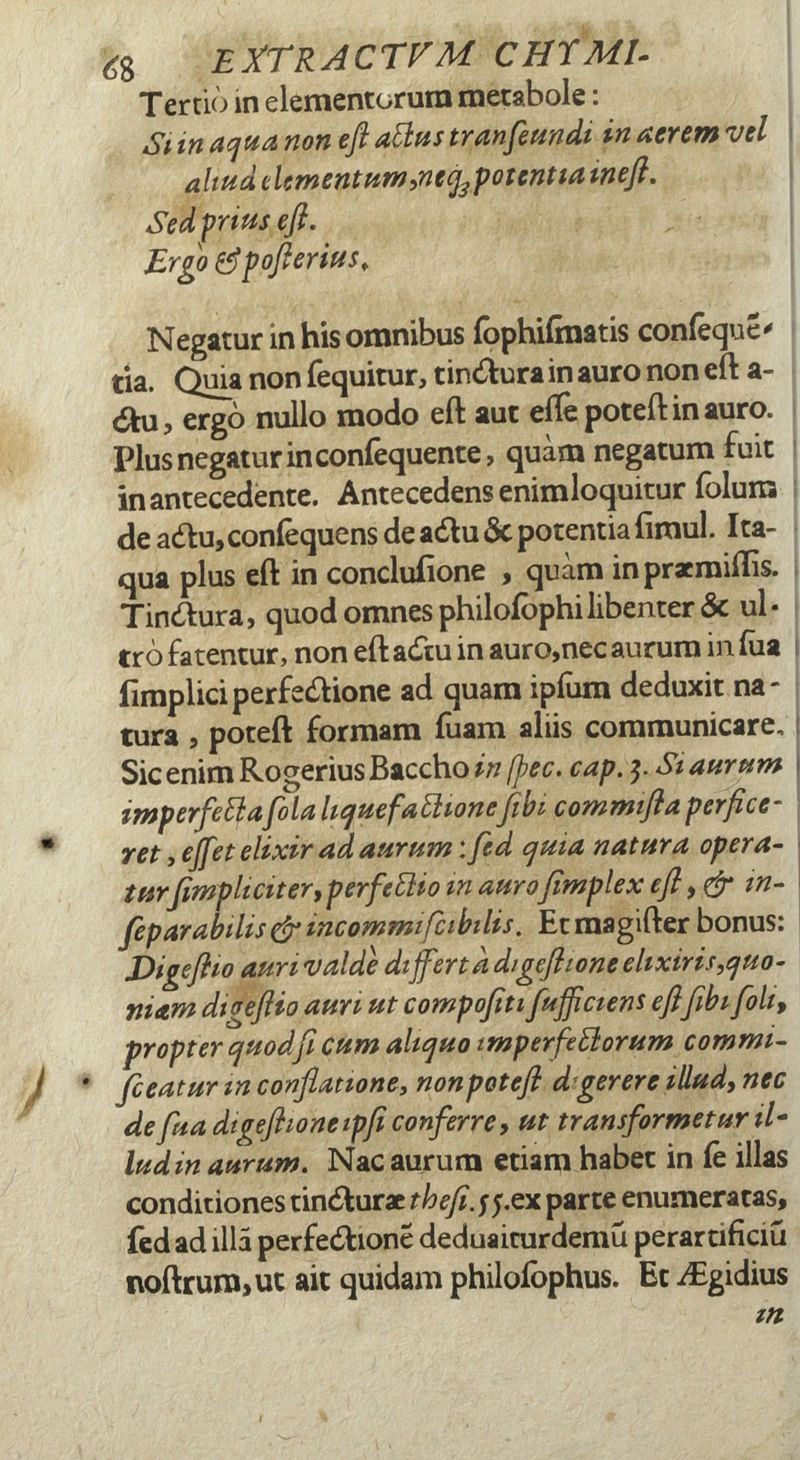 68 EXTRACTVM CHYMI-
Tertiò in elementorum metabole:
Si in aqua non eſt actus tranſeundi in aerem vel
aliud elementum, neq; potentia ineſt.
Sed prius eſt.
Ergò & poſterius.
Negatur in his omnibus ſophiſmatis conſequē-
tia. Quia non ſequitur, tinctura in auro non eſt a-
ctu, ergò nullo modo eſt aut eſſe poteſt in auro.
Plus negatur in conſequente, quàm negatum fuit
in antecedente. Antecedens enim loquitur ſolum
de actu, conſequens de actu & potentia ſimul. Ita-
qua plus eſt in concluſione , quàm in præmiſſis.
Tinctura, quod omnes philoſophi libenter & ul-
trò fatentur, non eſt actu in auro, nec aurum in ſua
ſimplici perfectione ad quam ipſum deduxit na-
tura , poteſt formam ſuam aliis communicare.
Sic enim Rogerius Baccho in ſpec. cap. 3. Si aurum
imperfecta ſola liquefactione ſibi commiſta perfice-
ret , eſſet elixir ad aurum : ſed quia natura opera-
tur ſimpliciter, perfectio in auro ſimplex eſt , & in-
ſeparabilis & incommiſcibilis. Et magiſter bonus:
Digeſtio auri valdè differt à digeſtione elixiris, quo-
niam digeſtio auri ut compoſiti ſufficiens eſt ſibi ſoli,
propter quod ſi cum aliquo imperfectorum commi-
ſceatur in conflatione, non poteſt digerere illud, nec
de ſua digeſtione ipſi conferre, ut transformetur il-
lud in aurum. Nac aurum etiam habet in ſe illas
conditiones tincturæ theſi. 55. ex parte enumeratas,
ſed ad illā perfectionē deduaitur demū per artificiū
noſtrum, ut ait quidam philoſophus. Et Ægidius
in